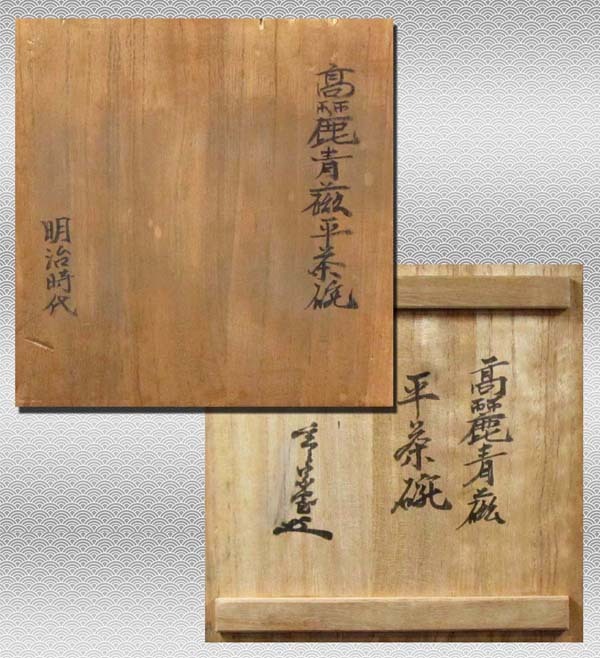 高麗青磁平茶碗
明治時代
高麗青磁
平茶碗